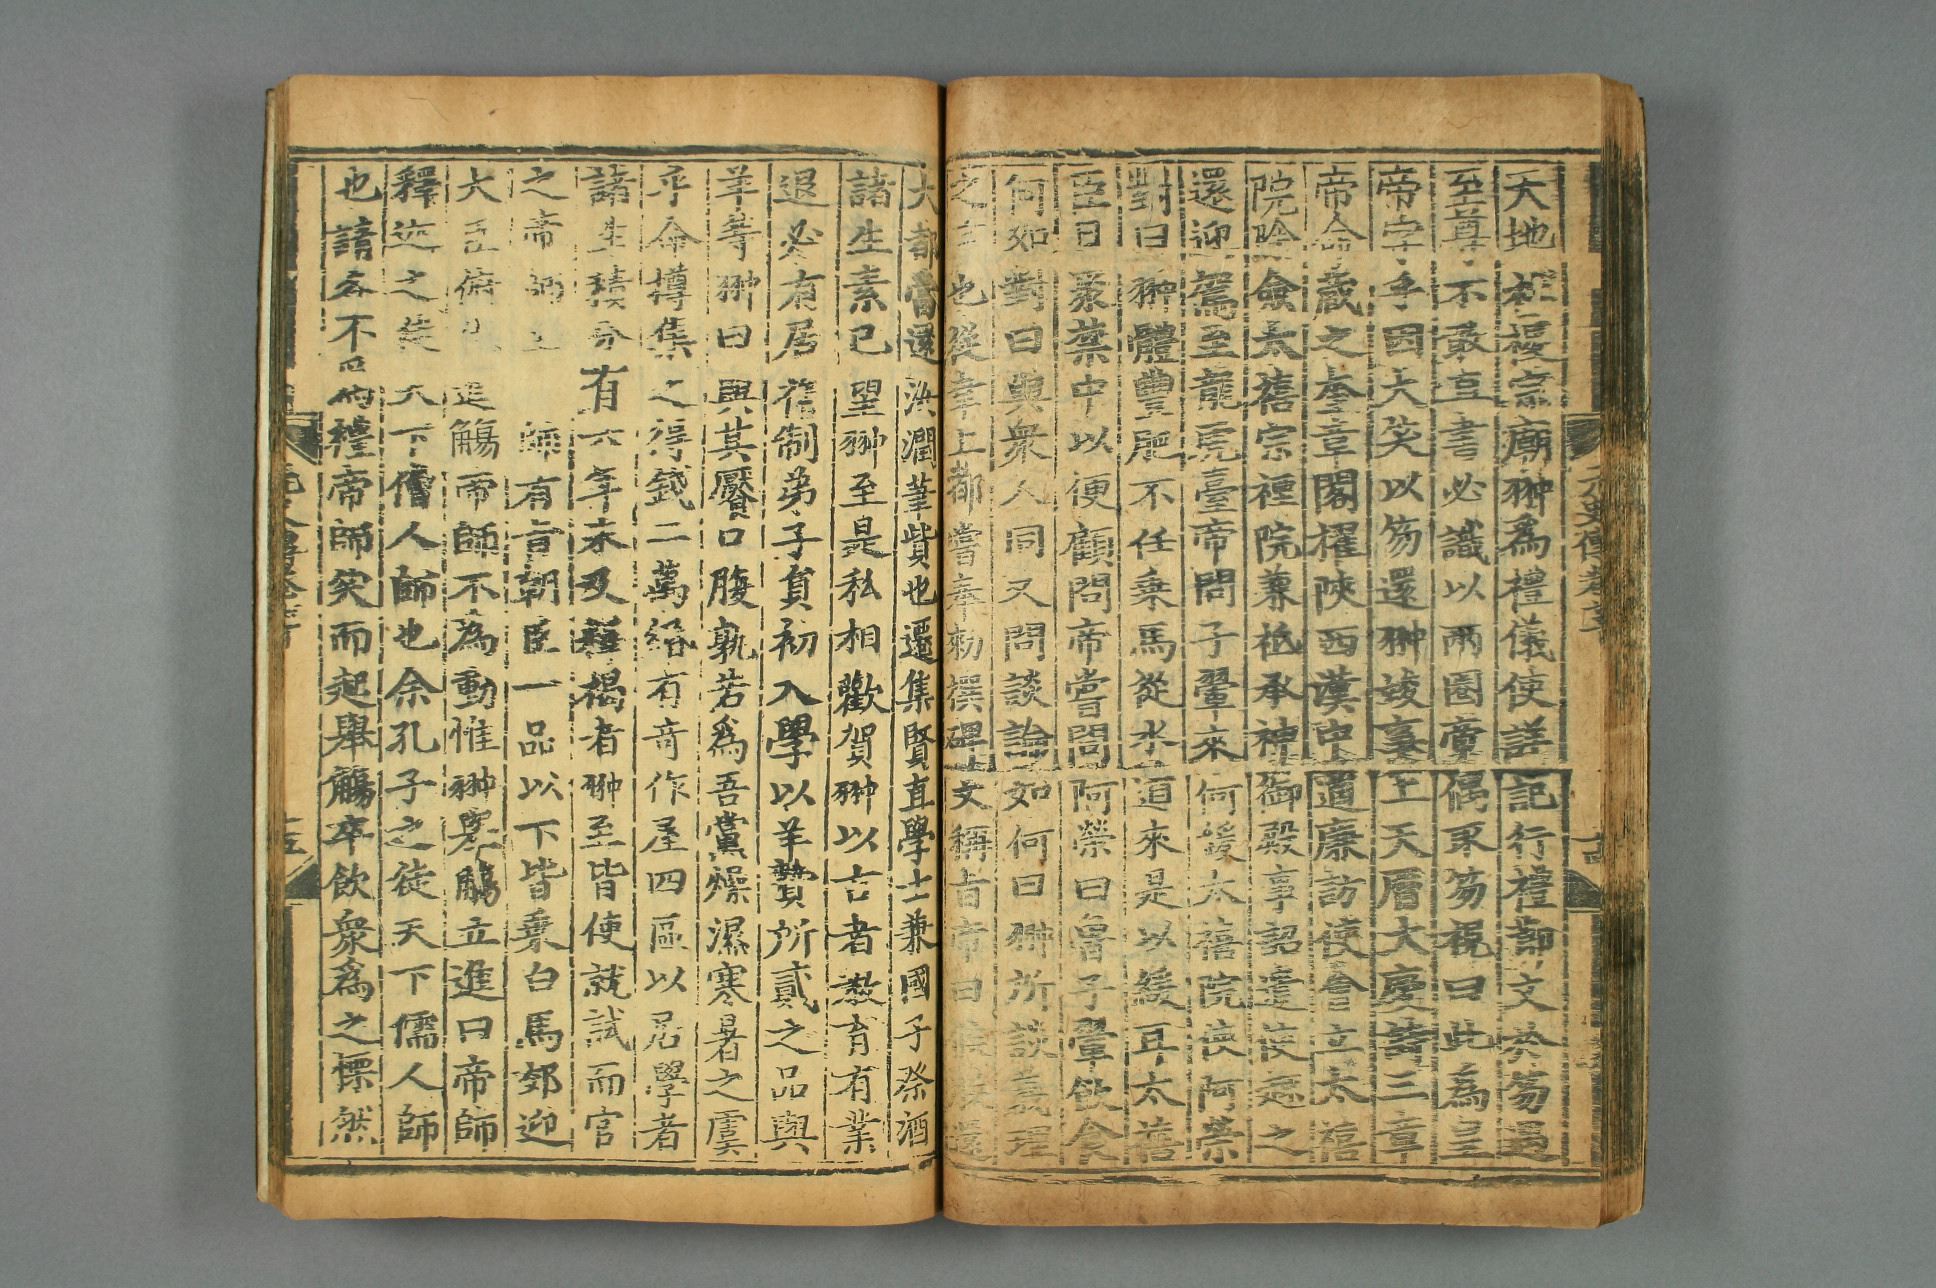 天地社稷宗廟翀爲禮儀使詳記行禮節文於笏遇
至尊不敢直書必識以兩圈帝偶取笏視曰此為皇
帝字乎因大笑以笏還翀竣事上天曆大慶詩三章
帝命藏之奎章閣擢陝西漢中道廉訪使會立太禧
院除僉太禧宗禋院兼祗承神御殿事詔遣使趣之
還迎駕至龍虎臺帝問子翬來何緩太禧院使阿榮
對曰翀體豐肥不任乗馬從水道來是以緩耳太禧
臣日聚禁中以便顧問帝嘗問阿榮曰魯子翬飲食
何如對曰與衆人同又問談論如何曰翀所談義理
之言也從幸上都嘗奉勑撰碑文稱旨帝曰候朕還
大都當還汝潤筆貲也遷集賢直學士兼國子祭酒
諸生素已望翀至是私相歡賀翀以古者敎育有業
退必有居舊制弟子員初入學以羊贄所貳之品與
羊等翀曰與其饜口腹孰若爲吾黨燥濕寒暑之虞
乎命撙集之得錢二萬緡有奇作屋四區以居學者
諸生積分有六年未及釋褐者翀至皆使就試而官
之帝師至 師有旨朝臣一品以下皆乗白馬郊迎
大臣俯 進觴帝師不為動惟翀舉觴立進曰帝師
釋迦之徒天下僧人師也余孔子之徒天下儒人師
也請各不為禮帝師笑而起舉觴卒飲衆爲之慄然
元史傳卷 十四
十五